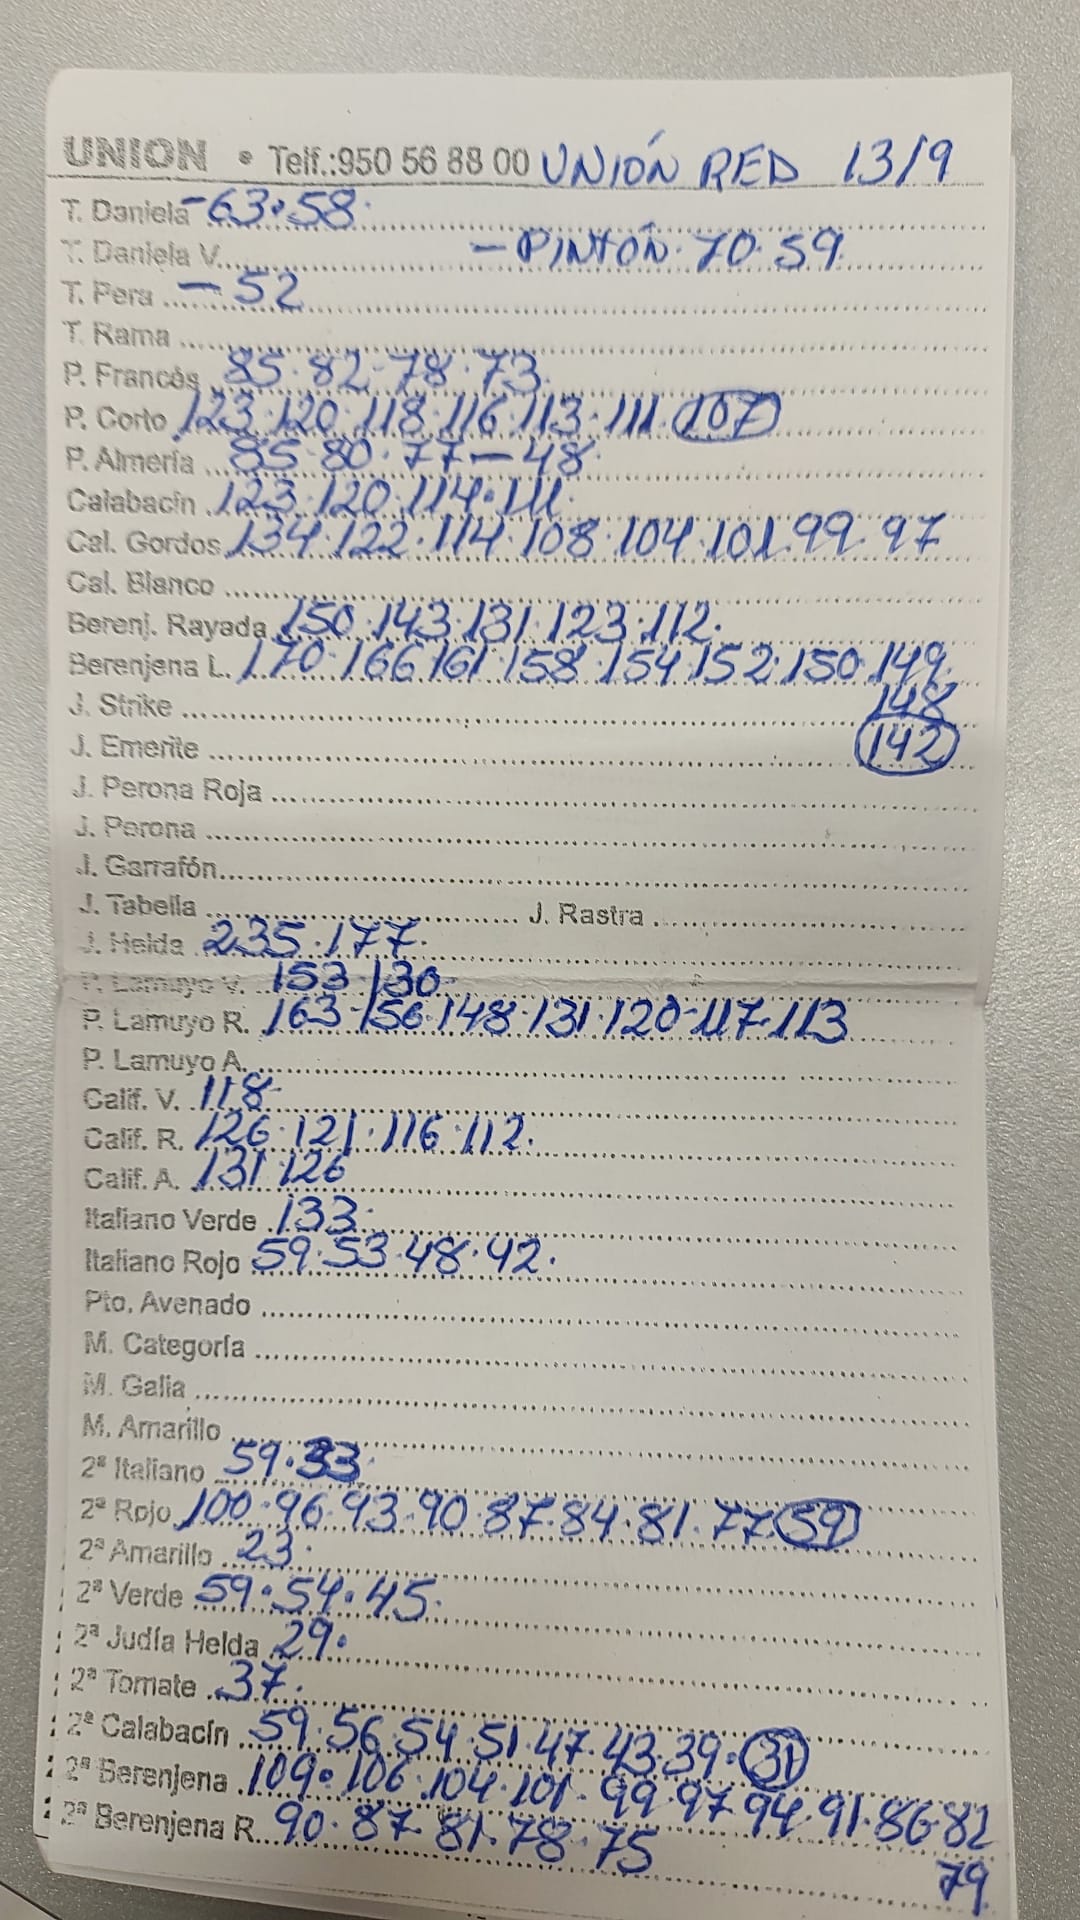 UNION • Telf.:950 56 88 00 UNIÓN RED 13/9
T. Daniela -63·58·
T. Daniela V. - PINTÓN·70·59.
T. Pera - 52
T. Rama
P. Francés 85·82-78·73.
P. Corto 123·120·118·116·113·111·107
P. Almería 85·80·77-48·
Calabacín 123·120·114·111·
Cal. Gordos 134·122·114·108·104·101·99·97
Cal. Blanco
Berenj. Rayada 150·143·131·123·112·
Berenjena L. 170·166 161·158·154·152·150·149·
J. Strike 148
J. Emerite 142
J. Perona Roja
J. Perona
J. Garrafón
J. Tabella J. Rastra
J. Helda 235·177·
P. Lamuyo V. 153·130·
P. Lamuyo R. 163-156·148·131·120-117·113
P. Lamuyo A.
Calif. V. 118·
Calif. R. 126·121·116·112.
Calif. A. 131 126
Italiano Verde 133·
Italiano Rojo 59·53·48·42·
Pto. Avenado
M. Categoría
M. Galia
M. Amarillo
2ª Italiano 59·33·
2ª Rojo 100·96·93·90·87·84·81·77·59
2ª Amarillo 23·
2ª Verde 59·54·45·
2ª Judía Helda 29·
2ª Tomate 37·
2ª Calabacín 59·56·54·51·47·43·39·31
2ª Berenjena 109·106·104·101-99·97 94·91·86·82
2ª Berenjena R. 90·87·81·78·75
79